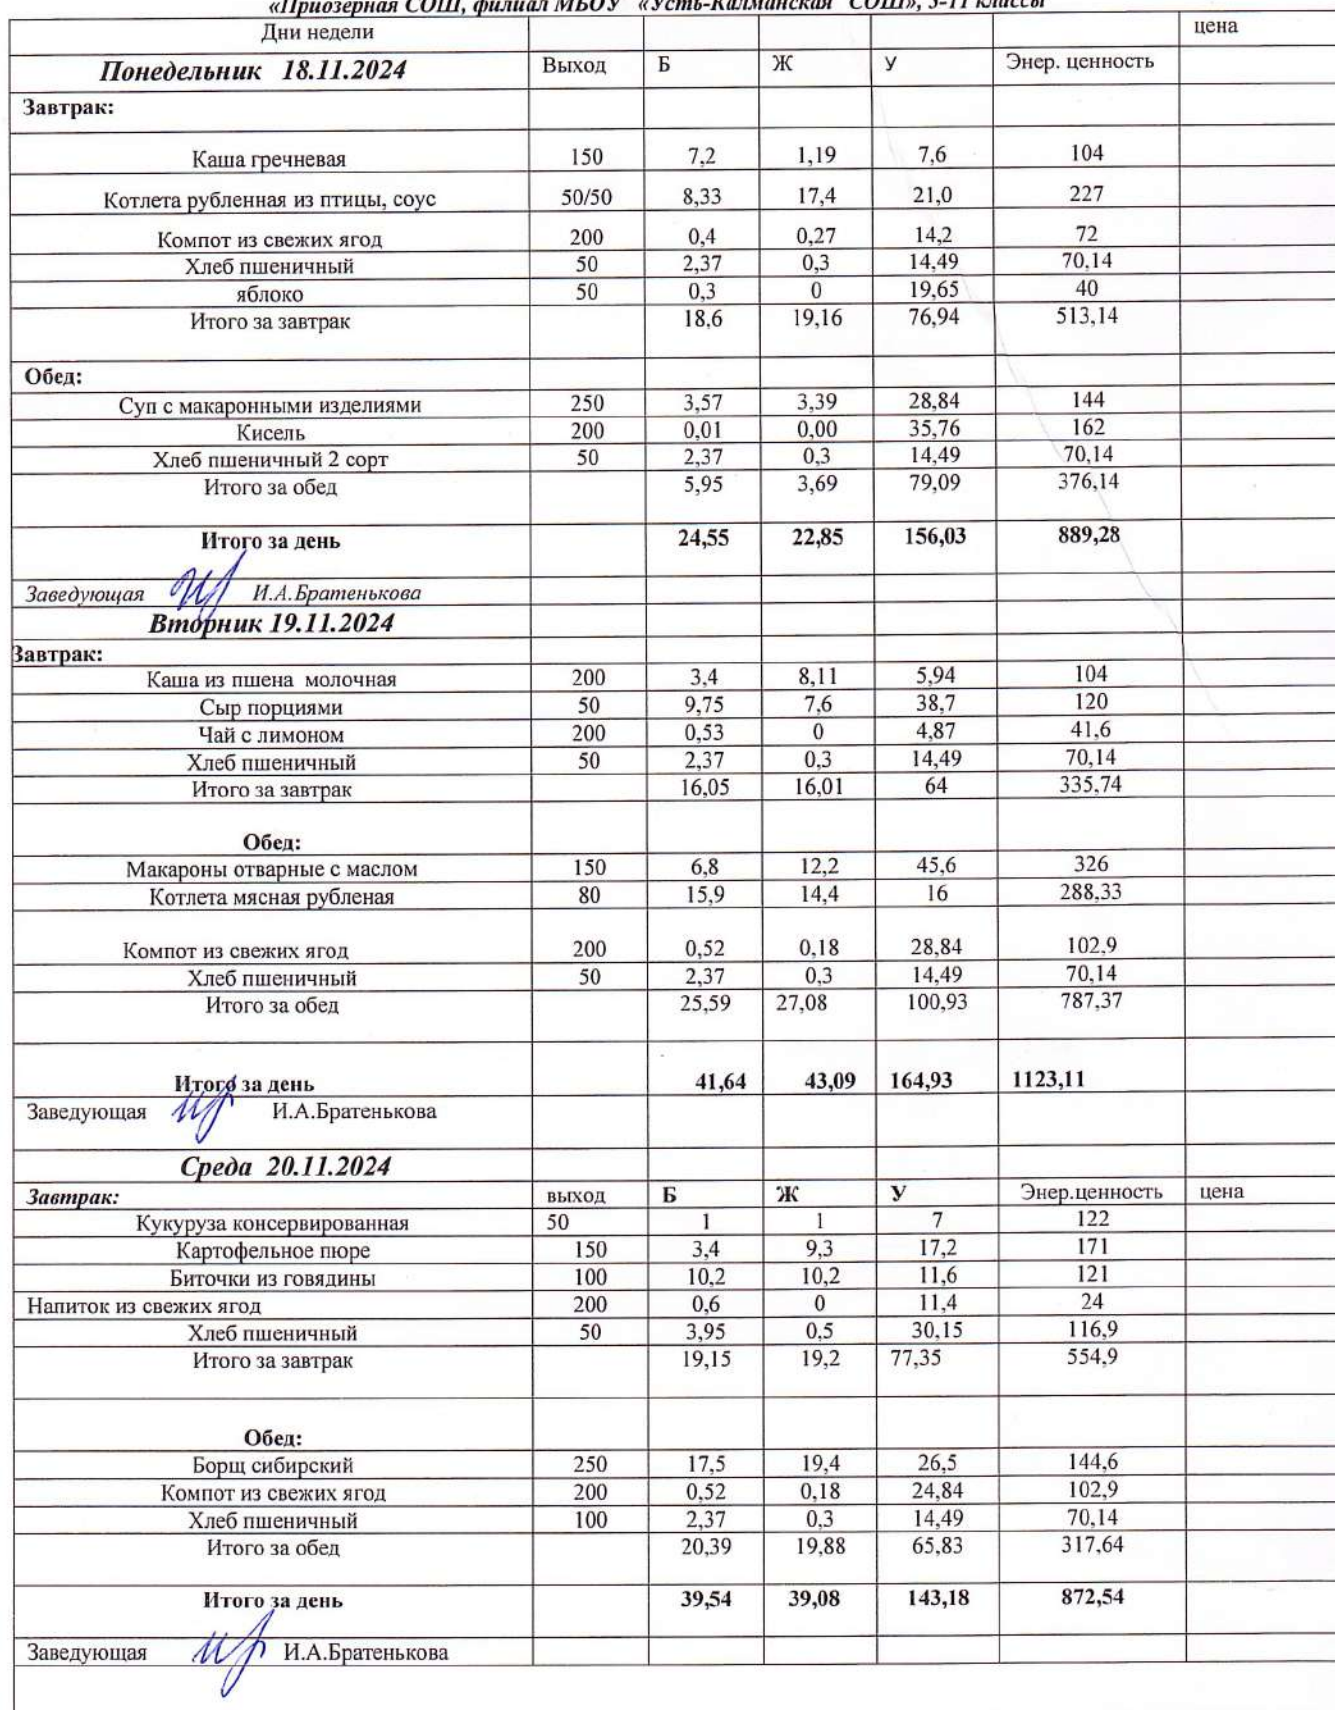 «Приозерная СОШ, филиал МБОУ «Усть-Калманская СОШ», 5-11 классы
Дни недели цена
Понедельник 18.11.2024 Выход Б Ж У Энер. ценность
Завтрак:
Каша гречневая 150 7,2 1,19 7,6 104
Котлета рубленная из птицы, соус 50/50 8,33 17,4 21,0 227
Компот из свежих ягод 200 0,4 0,27 14,2 72
Хлеб пшеничный 50 2,37 0,3 14,49 70,14
яблоко 50 0,3 0 19,65 40
Итого за завтрак 18,6 19,16 76,94 513,14
Обед:
Суп с макаронными изделиями 250 3,57 3,39 28,84 144
Кисель 200 0,01 0,00 35,76 162
Хлеб пшеничный 2 сорт 50 2,37 0,3 14,49 70,14
Итого за обед 5,95 3,69 79,09 376,14
Итого за день 24,55 22,85 156,03 889,28
Заведующая И.А.Братенькова
Вторник 19.11.2024
Завтрак:
Каша из пшена молочная 200 3,4 8,11 5,94 104
Сыр порциями 50 9,75 7,6 38,7 120
Чай с лимоном 200 0,53 0 4,87 41,6
Хлеб пшеничный 50 2,37 0,3 14,49 70,14
Итого за завтрак 16,05 16,01 64 335,74
Обед:
Макароны отварные с маслом 150 6,8 12,2 45,6 326
Котлета мясная рубленая 80 15,9 14,4 16 288,33
Компот из свежих ягод 200 0,52 0,18 28,84 102,9
Хлеб пшеничный 50 2,37 0,3 14,49 70,14
Итого за обед 25,59 27,08 100,93 787,37
Итого за день 41,64 43,09 164,93 1123,11
Заведующая И.А.Братенькова
Среда 20.11.2024
Завтрак: выход Б Ж У Энер.ценность цена
Кукуруза консервированная 50 1 1 7 122
Картофельное пюре 150 3,4 9,3 17,2 171
Биточки из говядины 100 10,2 10,2 11,6 121
Напиток из свежих ягод 200 0,6 0 11,4 24
Хлеб пшеничный 50 3,95 0,5 30,15 116,9
Итого за завтрак 19,15 19,2 77,35 554,9
Обед:
Борщ сибирский 250 17,5 19,4 26,5 144,6
Компот из свежих ягод 200 0,52 0,18 24,84 102,9
Хлеб пшеничный 100 2,37 0,3 14,49 70,14
Итого за обед 20,39 19,88 65,83 317,64
Итого за день 39,54 39,08 143,18 872,54
Заведующая И.А.Братенькова